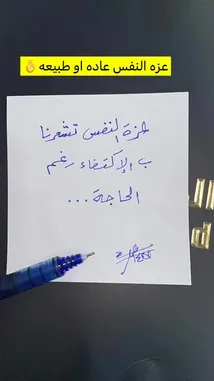 عزه النفس عاده او طبيعه👌
عزة النفس تشعرنا
ب الإكتفاء رغم
الحاجة ...